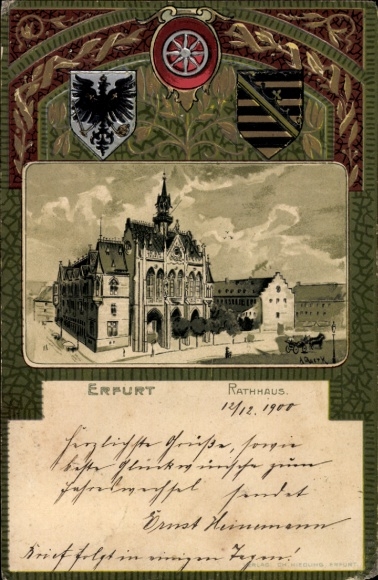 ERFURT RATHHAUS.
12/12. 1900
Herzlichste Grüße, sowie
beste Glückwünsche zum
Jahreswechsel sendet
Ernst Heinemann
Brief folgt in einigen Tagen!
VERLAG. ERFURT